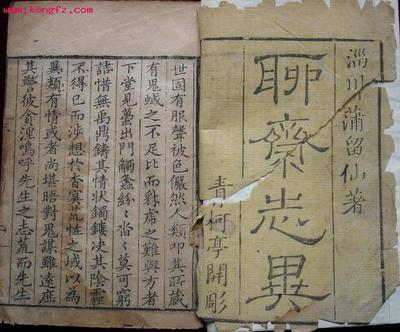 www.kongfz.com
淄川蒲留仙著
聊齋志異
青柯亭開雕
世固有服聲被色儼然人類叩其所藏
有鬼蜮之不足比而豺虎之難與方者
下堂見蠆出門觸蠡紛〻沓〻莫可窮
詰惜無禹鼎鑄其情狀鐲鏤決其陰霾
不得已而涉想於杳冥荒怪之域以為
異類有情或者尚堪晤對鬼謀雖遠庶
其警彼貪淫嗚呼先生之志荒而先生